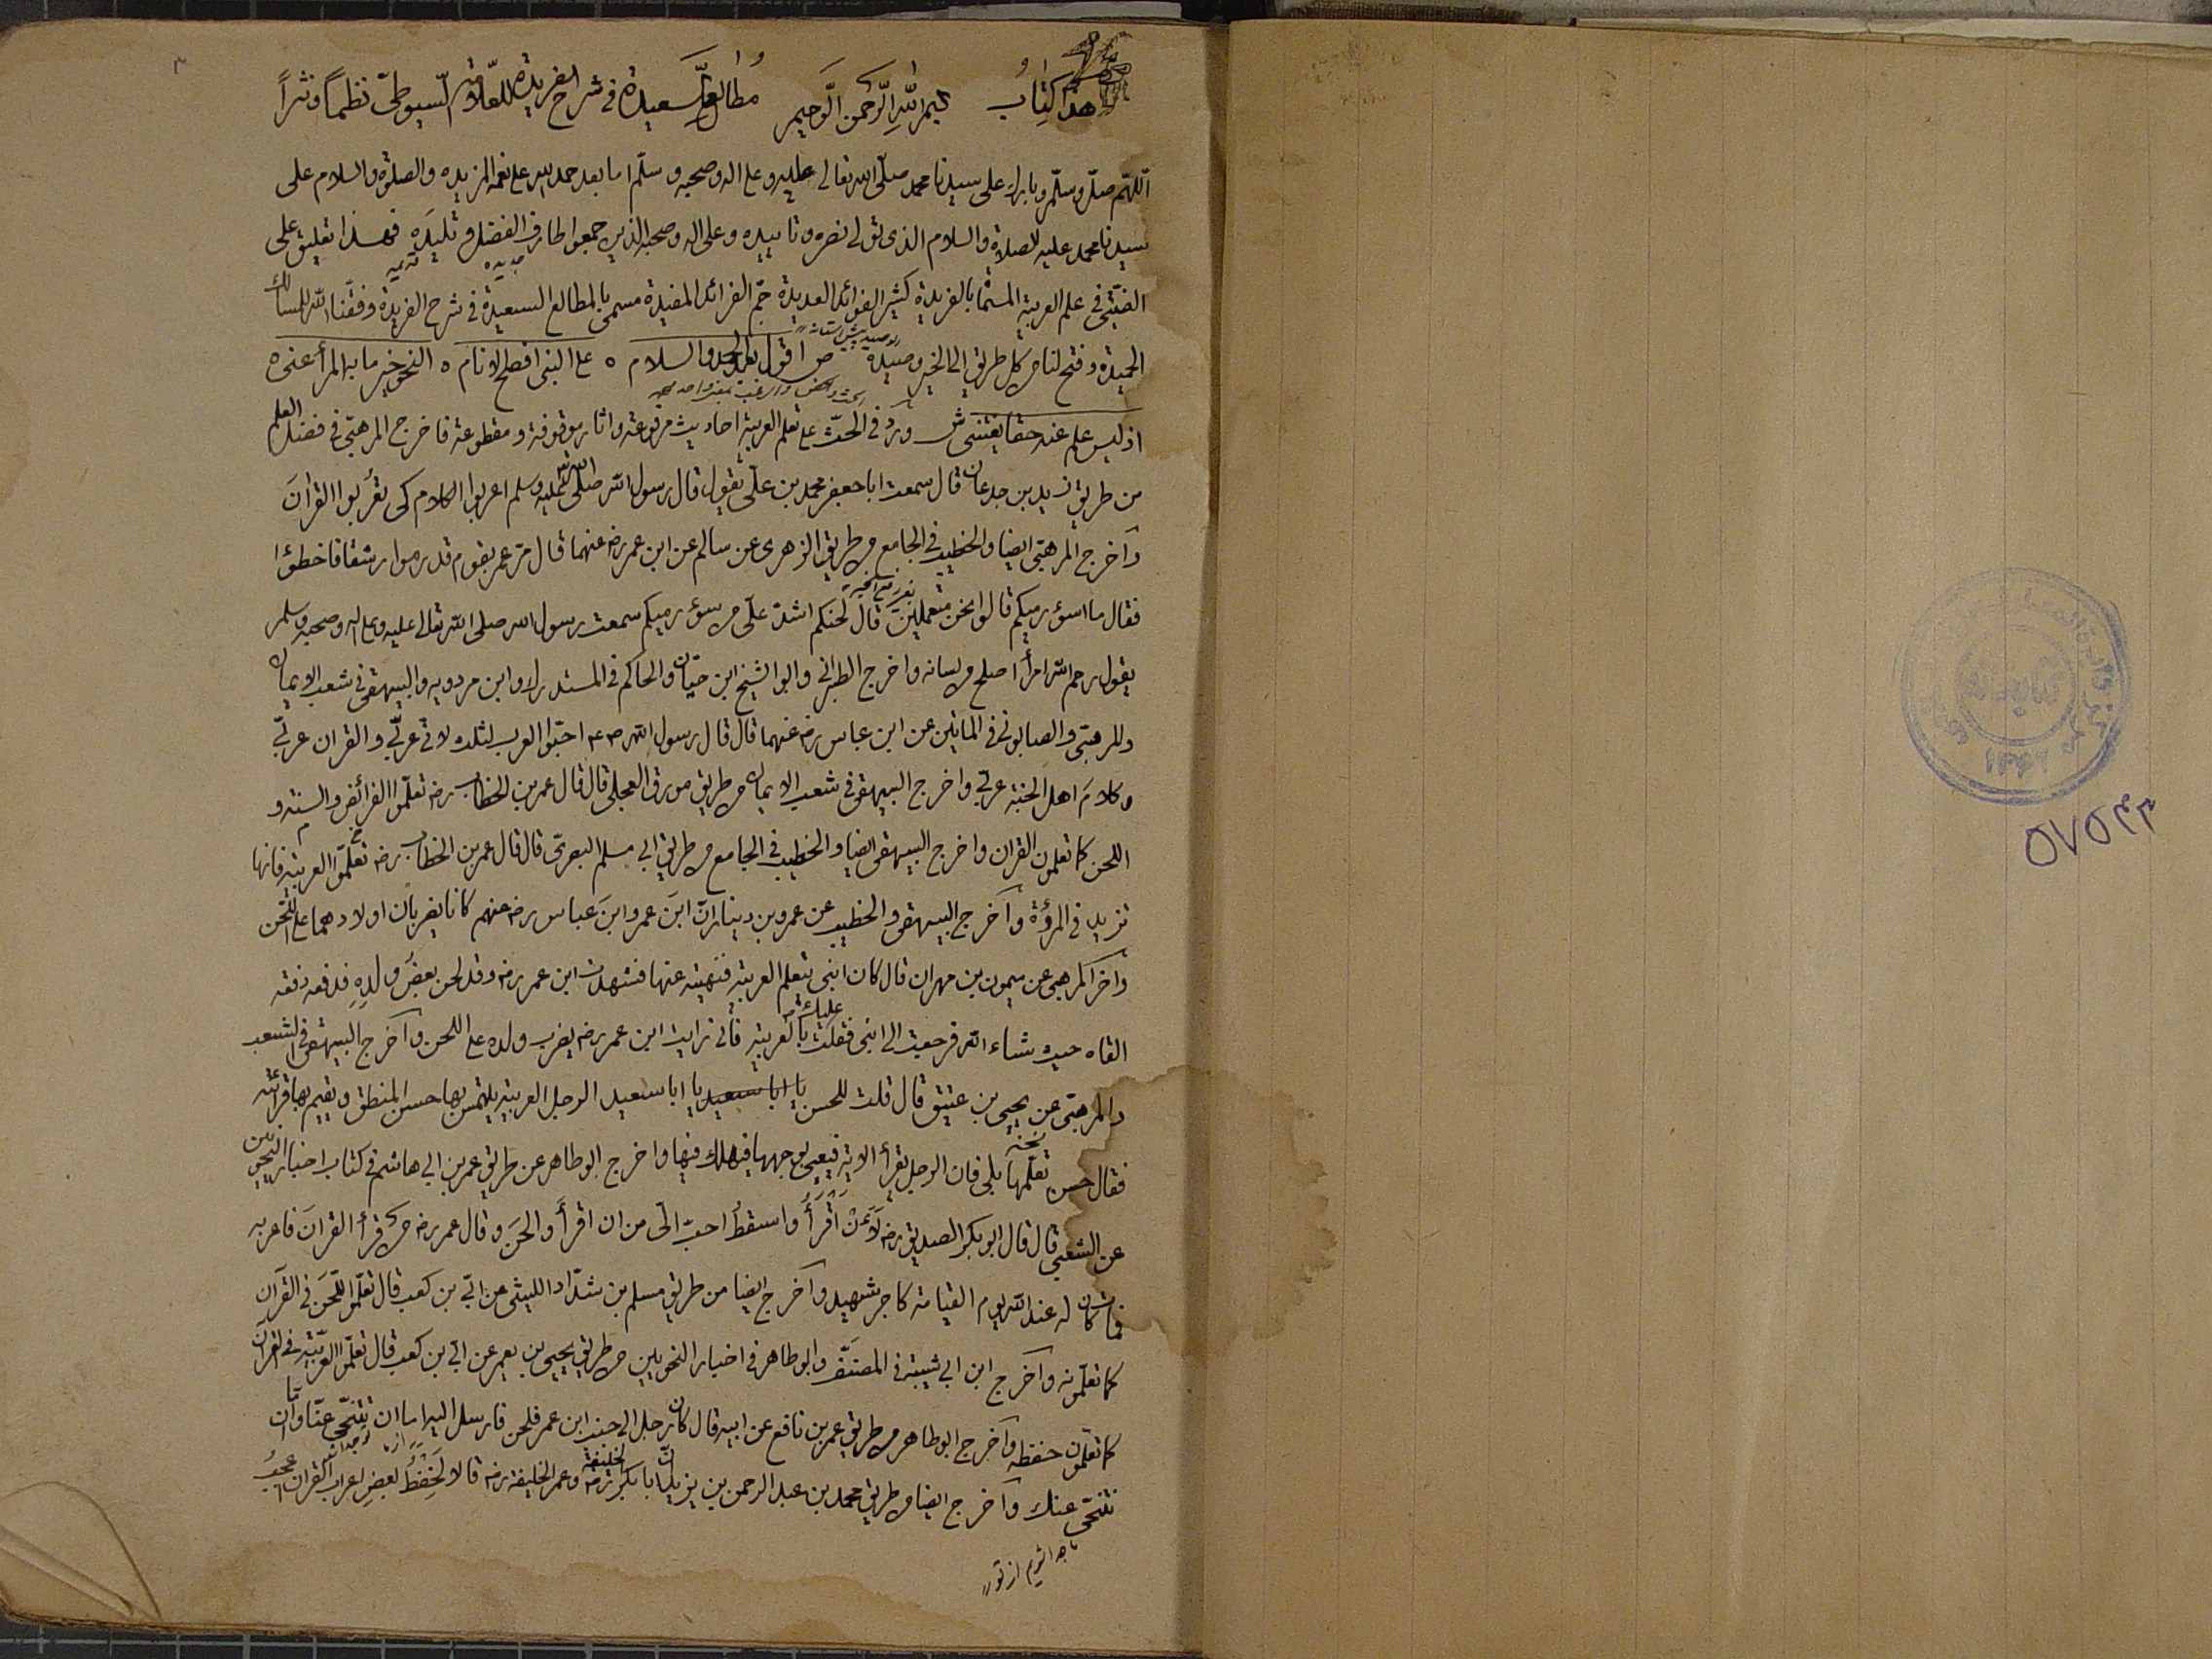 هذا كتاب بسم الله الرحمن الرحيم مطالع السعيدة في شرح الفريدة للعلامة السيوطي نظماً ونثراً
اللهم صل وسلم وبارك على سيدنا محمد صلى الله تعالى عليه وعلى اله وصحبه وسلم اما بعد حمد الله على نعمه المزيده والصلوة والسلام على
سيدنا محمد عليه الصلاة والسلام الذى تولى نصره وتاييده وعلى اله وصحبه الذين جمعوا طارف الفضل وتليده فهذا تعليق على
جديده قديمه
الفيتى في علم العربية المسماة بالفريدة كثير الفوائد العديدة جم الفرائد المفيدة مسمى بالمطالع السعيدة في شرح الفريدة وفقنا الله للمسالك
الحميدة وفتح لنا من كل طريق الى الخير وصيدة ص اقول بعد الحمد والسلام ٥ على النبى افصح الانام ٥ النحو خير ما به المرأ عنى ٥
اذ ليس علم عنه حقا يغتنى ش ورد في الحث على تعلم العربية احاديث مرفوعة واثار موقوفة ومقطوعة فاخرج المرهبى في فضل العلم
من طريق زيد بن جدعان قال سمعت ابا جعفر محمد بن على يقول قال رسول الله صلى الله عليه وسلم اعربوا الكلام كى تعربوا القران
واخرج المرهبى ايضا والخطيب في الجامع من طريق الزهرى عن سالم عن ابن عمر رضه عنهما قال مر عمر بقوم قد رموا رشقا فاخطؤا
فقال ما اسوء رميكم قالوا نحن متعلمين قال لحنكم اشد على من سوء رميكم سمعت رسول الله صلى الله تعالى عليه وعلى اله وصحبه وسلم
يقول رحم الله امرأ اصلح من لسانه واخرج الطبرانى وابو الشيخ ابن حيان والحاكم في المستدرك وابن مردويه والبيهقى في شعب الايمان
والمرهبى والصابونى في المائتين عن ابن عباس رضه عنهما قال قال رسول الله صم احبوا العرب لثلث لانى عربى والقران عربى
وكلام اهل الجنة عربى واخرج البيهقى في شعب الايمان من طريق مورق العجلى قال قال عمر بن الخطاب رضه تعلموا الفرائض والسنة و
اللحن كما تعلمون القران واخرج البيهقى ايضا والخطيب في الجامع من طريق ابى مسلم البصرى قال قال عمر بن الخطاب رضه تعلموا العربية فانها
تزيد في المروءة واخرج البيهقى والخطيب عن عمرو بن دينار ان ابن عمر وابن عباس رضه عنهم كانا يضربان اولادهما على اللحن
واخرج المرهبى عن ميمون بن مهران قال كان ابنى يتعلم العربية فنهيته عنها فشهدت ابن عمر رضه وقد لحن بعض ولده فدفعه دفعة
القاه حيث شاء الله فرجعت الى ابنى فقلت عليك بالعربية فانى رايت ابن عمر رضه يضرب ولده على اللحن واخرج البيهقى في الشعب
والمرهبى عن يحيى بن عتيق قال قلت للحسن يا ابا سعيد يا ابا سعيد الرجل العربية يلتمس بها حسن المنطق ويقيم بها قرائته
فقال حسن تعلمها بلى فان الرجل يقرأ الاية فيعيى بوجهها فيهلك فيها واخرج ابو طاهر عن طريق عمر بن ابى هاشم في كتاب اخبار النحويين
عن الشعبى قال قال ابو بكر الصديق رضه لأن اقرأ واسقط احب الى من ان اقرأ والحن وقال عمر رضه من قرأ القران فاعربه
فمات كان له عند الله يوم القيامة كاجر شهيد واخرج ايضا من طريق مسلم بن شداد الليثى عن ابى بن كعب قال تعلموا اللحن في القرآن
كما تعلمونه واخرج ابن ابى شيبة في المصنف وابو طاهر في اخبار النحويين من طريق يحيى بن يعمر عن ابى بن كعب قال تعلموا العربية في القرآن
كما تعلمون حفظه واخرج ابو طاهر من طريق عمر بن نافع عن ابيه قال كان رجل الى جنب ابن عمر فلحن فارسل اليه اما ان تتنحى عنا واما ان
نتنحى عنك واخرج ايضا من طريق محمد بن عبد الرحمن بن يزيد ان ابا بكر الخليفة رضه وعمر الخليفة رضه قالا لحفظ بعض اعراب القران اعجب
٥٧٥٣٣